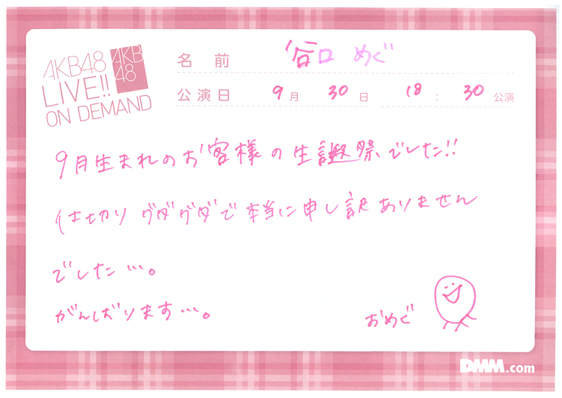 AKB48
LIVE!!
ON DEMAND
AKB
48
名前 谷口 めぐ
公演日 9月 30日 18:30 公演
9月生まれのお客様の生誕祭でした!!
仕切り グダグダで本当に申し訳ありません
でした…。
がんばります…。
おめぐ
DMM.com